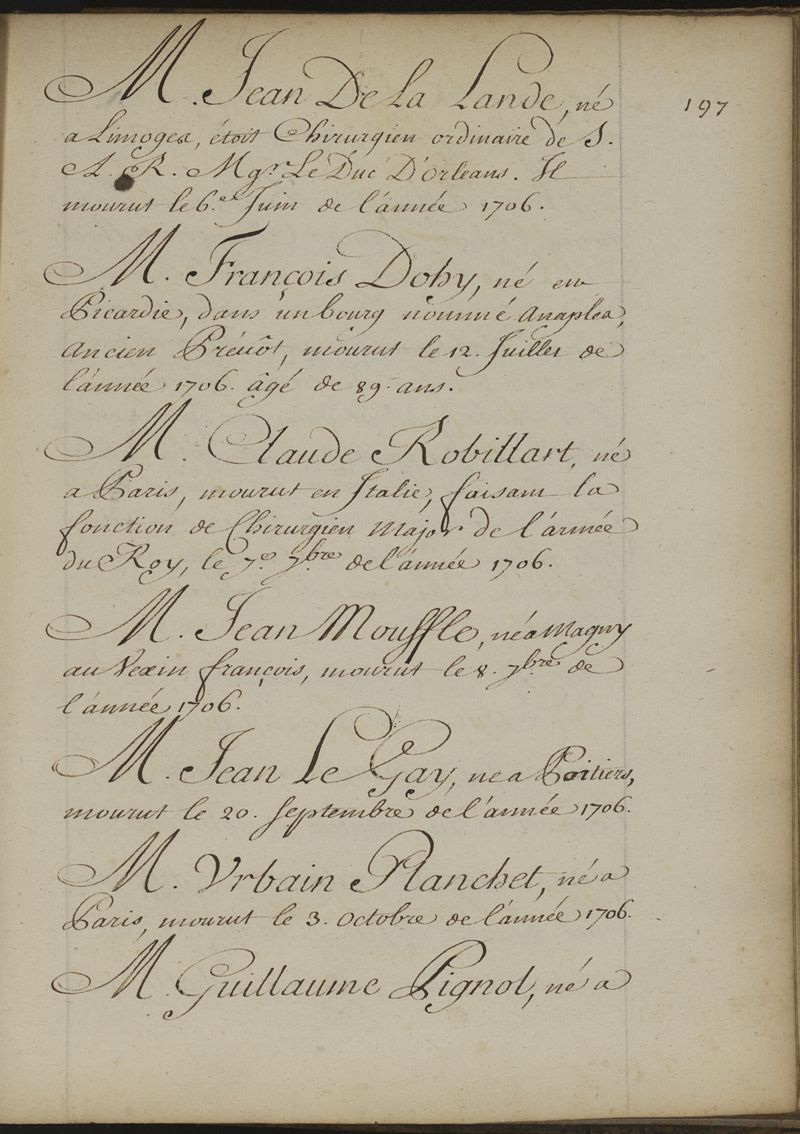 M. Jean De La Lande, né
197
a Limoges, étoit Chirurgien ordinaire de S.
A. R. Mgr. Le Duc D'orleans. Il
mourut le 6.e Juin de l'année 1706.
M. François Dohy, né en
Picardie, dans un bourg nommé anaples,
ancien Prévôt, mourut le 12. Juillet de
l'année 1706. âgé de 89. ans.
M. Claude Robillart, né
a Paris, mourut en Italie, faisant la
fonction de Chirurgien Major de l'armée
du Roy, le 7.e 7.bre de l'année 1706.
M. Jean Mouffle, né a Magny
au Vexin françois, mourut le 8. 7.bre de
l'année 1706.
M. Jean Le Gay, né a Poitiers,
mourut le 20. septembre de l'année 1706.
M. Vrbain Planchet, né a
Paris, mourut le 3. Octobre de l'année 1706.
M. Guillaume Pignol, né a